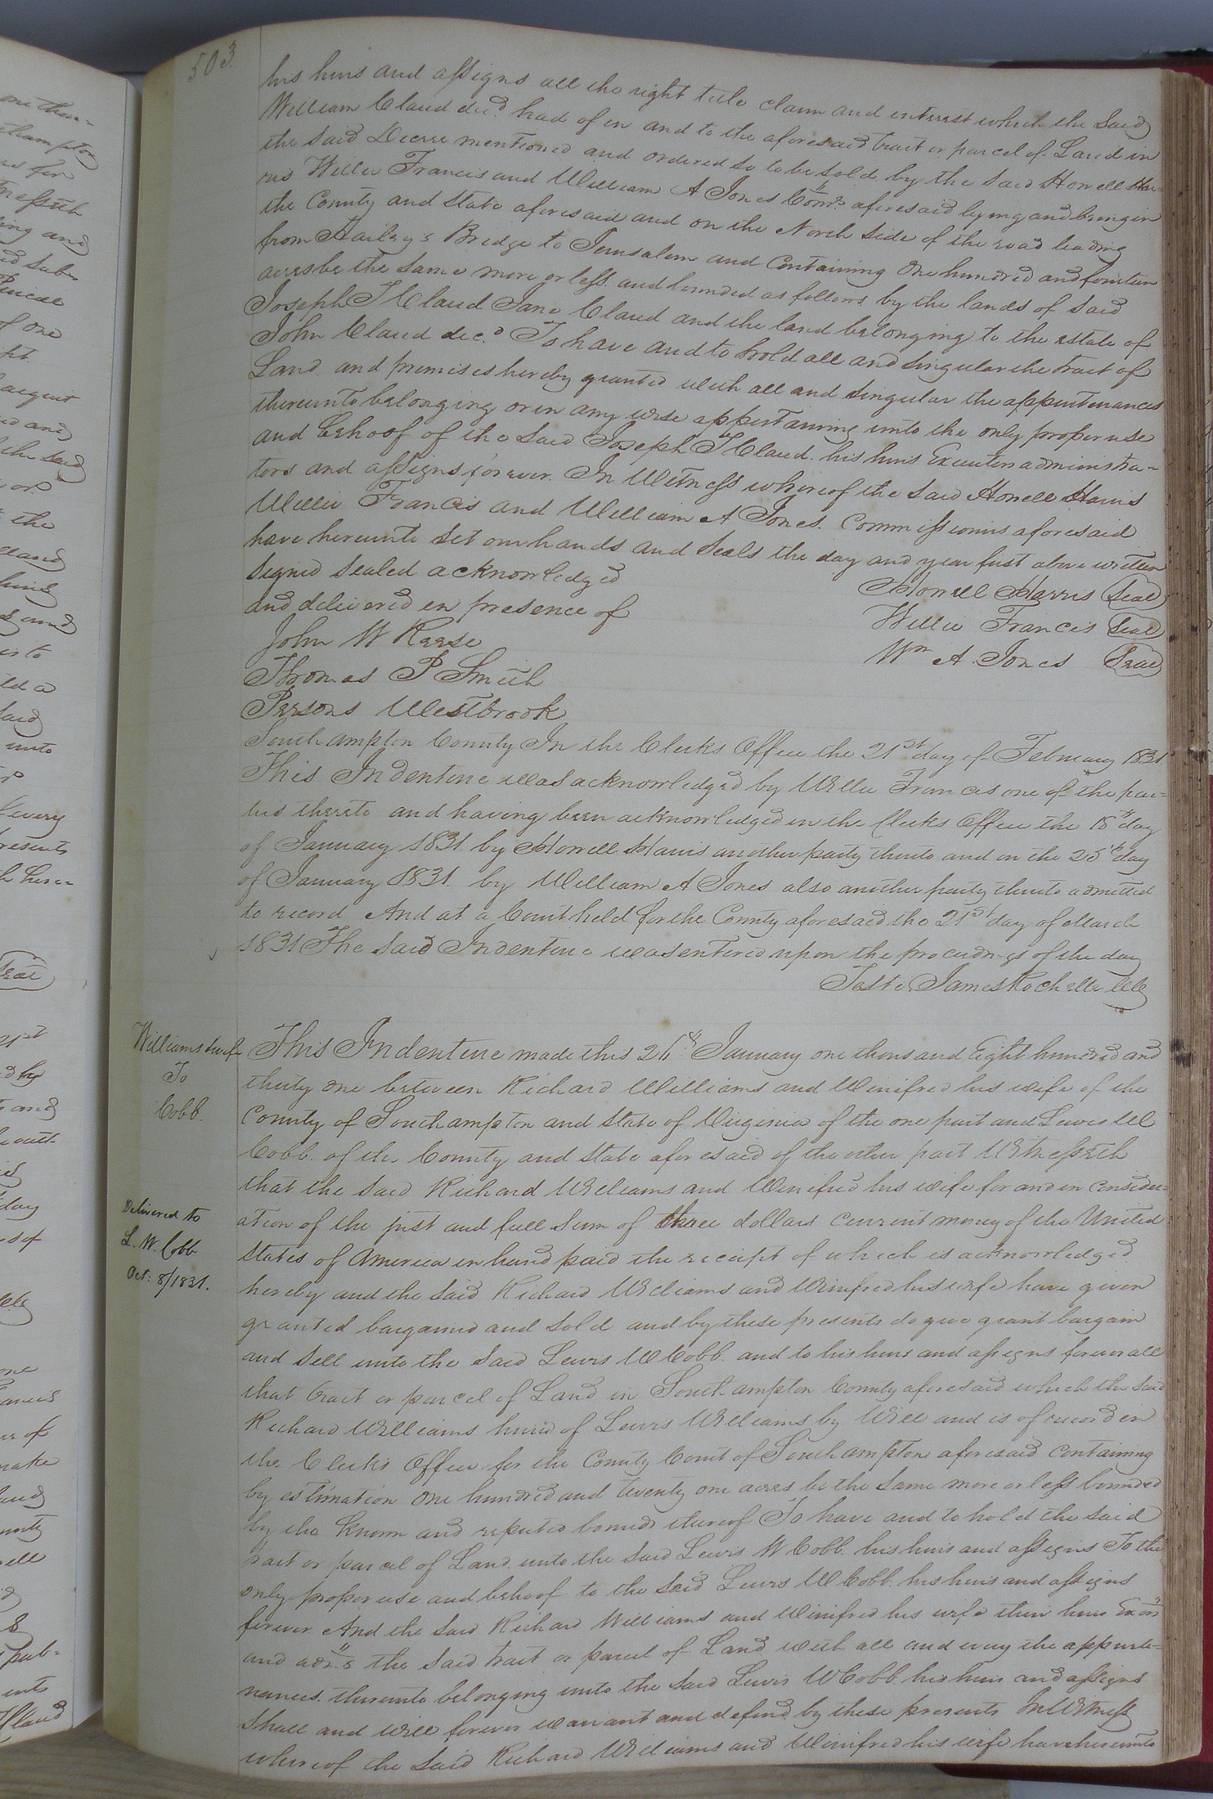 503
his heirs and assigns all the right title claim and interest which the Said
William Claud decd had of in and to the aforesaid tract or parcel of Land in
the said Decree mentioned and ordered so to be sold by the said Howell Har-
ris Willie Francis and William A Jones Comrs aforesaid lying and being in
the County and State aforesaid and on the North Side of the road leading
from Hailey's Bridge to Jerusalem and Containing One hundred and fourteen
acres be the same more or less and bounded as follows by the lands of said
Joseph T Claud Jane Claud and the land belonging to the estate of
John Claud decd To have and to hold all and singular the tract of
Land and premises hereby granted with all and singular the appurtenances
thereunto belonging or in any wise appertaining unto the only proper use
and behoof of the said Joseph T Claud his heirs Executors administra-
tors and assigns forever. In Witness whereof the said Howell Harris
Willie Francis and William A Jones Commissioners aforesaid
have hereunto set our hands and Seals the day and year first above written
Signed Sealed acknowledged
and delivered in presence of
John W Reese
Thomas P Smith
Persons Westbrook
Howell Harris Seal
Willie Francis Seal
Wm A Jones Seal
Southampton County In the Clerks Office the 21st day of February 1831
This Indenture was acknowledged by Willie Francis one of the par-
ties thereto and having been acknowledged in the Clerks Office the 18th day
of January 1831 by Howell Harris another party thereto and on the 25th day
of January 1831 by William A Jones also another party thereto admitted
to record And at a Court held for the County aforesaid the 21st day of March
1831 The Said Indenture was entered upon the proceedings of the day
Teste James Rochelle Clk
Williams &wife
To
Cobb
Delivered to
L. W. Cobb
Oct: 8/1831.
This Indenture made this 26th January one thousand Eight hundred and
thirty one between Richard Williams and Winifred his wife of the
County of Southampton and State of Virginia of the one part and Lewis W
Cobb of the County and State aforesaid of the other part Witnesseth
that the said Richard Williams and Winifred his wife for and in consider-
ation of the just and full Sum of three dollars current money of the United
States of America in hand paid the receipt of which is acknowledged
hereby and the said Richard Williams and Winifred his wife have given
granted bargained and sold and by these presents do give grant bargain
and sell unto the said Lewis W Cobb and to his heirs and assigns forever all
that tract or parcel of Land in Southampton County aforesaid which the said
Richard Williams heired of Lewis Williams by Will and is of record in
the Clerks Office for the County Court of Southampton aforesaid containing
by estimation one hundred and twenty one acres be the same more or less bounded
by the known and reputed bounds thereof To have and to hold the said
tract or parcel of Land unto the said Lewis W Cobb his heirs and assigns To the
only proper use and behoof to the said Lewis W Cobb his heirs and assigns
forever And the said Richard Williams and Winifred his wife their heirs Exors
and adms the said tract or parcel of Land with all and every the appurte-
nances thereunto belonging unto the said Lewis W Cobb his heirs and assigns
shall and will forever warrant and defend by these presents In Witness
whereof the said Richard Williams and Winifred his wife have hereunto